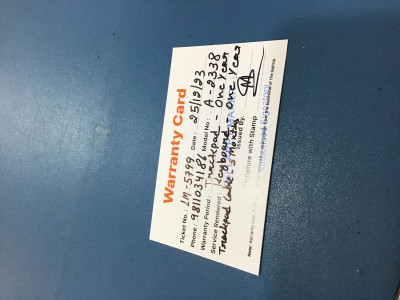 Warranty Card
Ticket No.: LM-5799 Date: 25/12/23
Phone: 9811034186 Model No: A-2338
Warranty Period: Trackpad - One Year
Service Rendered: Keyboard - One Year
Trackpad Cable - 3 Months
Issued By:
Signature with Stamp
Note: